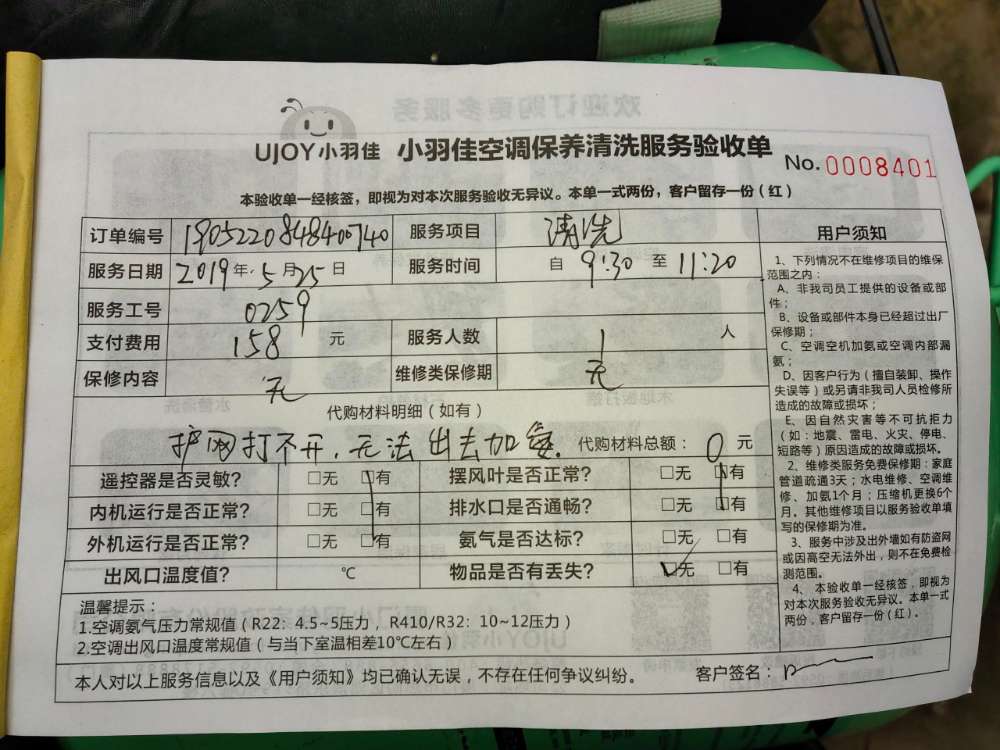 UJOY小羽佳 小羽佳空调保养清洗服务验收单 No.0008401
本验收单一经核签，即视为对本次服务验收无异议。本单一式两份，客户留存一份（红）
订单编号 190522084840740 服务项目 清洗
服务日期 2019年5月25日 服务时间 自 9:30 至 11:20
服务工号 0259
支付费用 158 元 服务人数 1 人
保修内容 无 维修类保修期 无
代购材料明细（如有）
护网打不开，无法出去加氨. 代购材料总额： 0 元
遥控器是否灵敏？ □无 □有 摆风叶是否正常？ □无 □有
内机运行是否正常？ □无 □有 排水口是否通畅？ □无 □有
外机运行是否正常？ □无 □有 氨气是否达标？ □无 □有
出风口温度值？ ℃ 物品是否有丢失？ □无 □有
温馨提示：
1.空调氨气压力常规值（R22：4.5~5压力，R410/R32：10~12压力）
2.空调出风口温度常规值（与当下室温相差10℃左右）
本人对以上服务信息以及《用户须知》均已确认无误，不存在任何争议纠纷。 客户签名：
用户须知
1、下列情况不在维修项目的维保
范围之内：
A、非我司员工提供的设备或部
件；
B、设备或部件本身已经超过出厂
保修期；
C、空调空机加氨或空调内部漏
氨；
D、因客户行为（擅自装卸、操作
失误等）或另请非我司人员检修所
造成的故障或损坏；
E、因自然灾害等不可抗拒力
（如：地震、雷电、火灾、停电、
短路等）原因造成的故障或损坏。
2、维修类服务免费保修期：家庭
管道疏通3天；水电维修、空调维
修、加氨1个月；压缩机更换6个
月。其他维修项目以服务验收单填
写的保修期为准。
3、服务中涉及出外墙如有防盗网
或因高空无法外出，则不在免费检
测范围。
4、本验收单一经核签，即视为
对本次服务验收无异议。本单一式
两份，客户留存一份（红）。